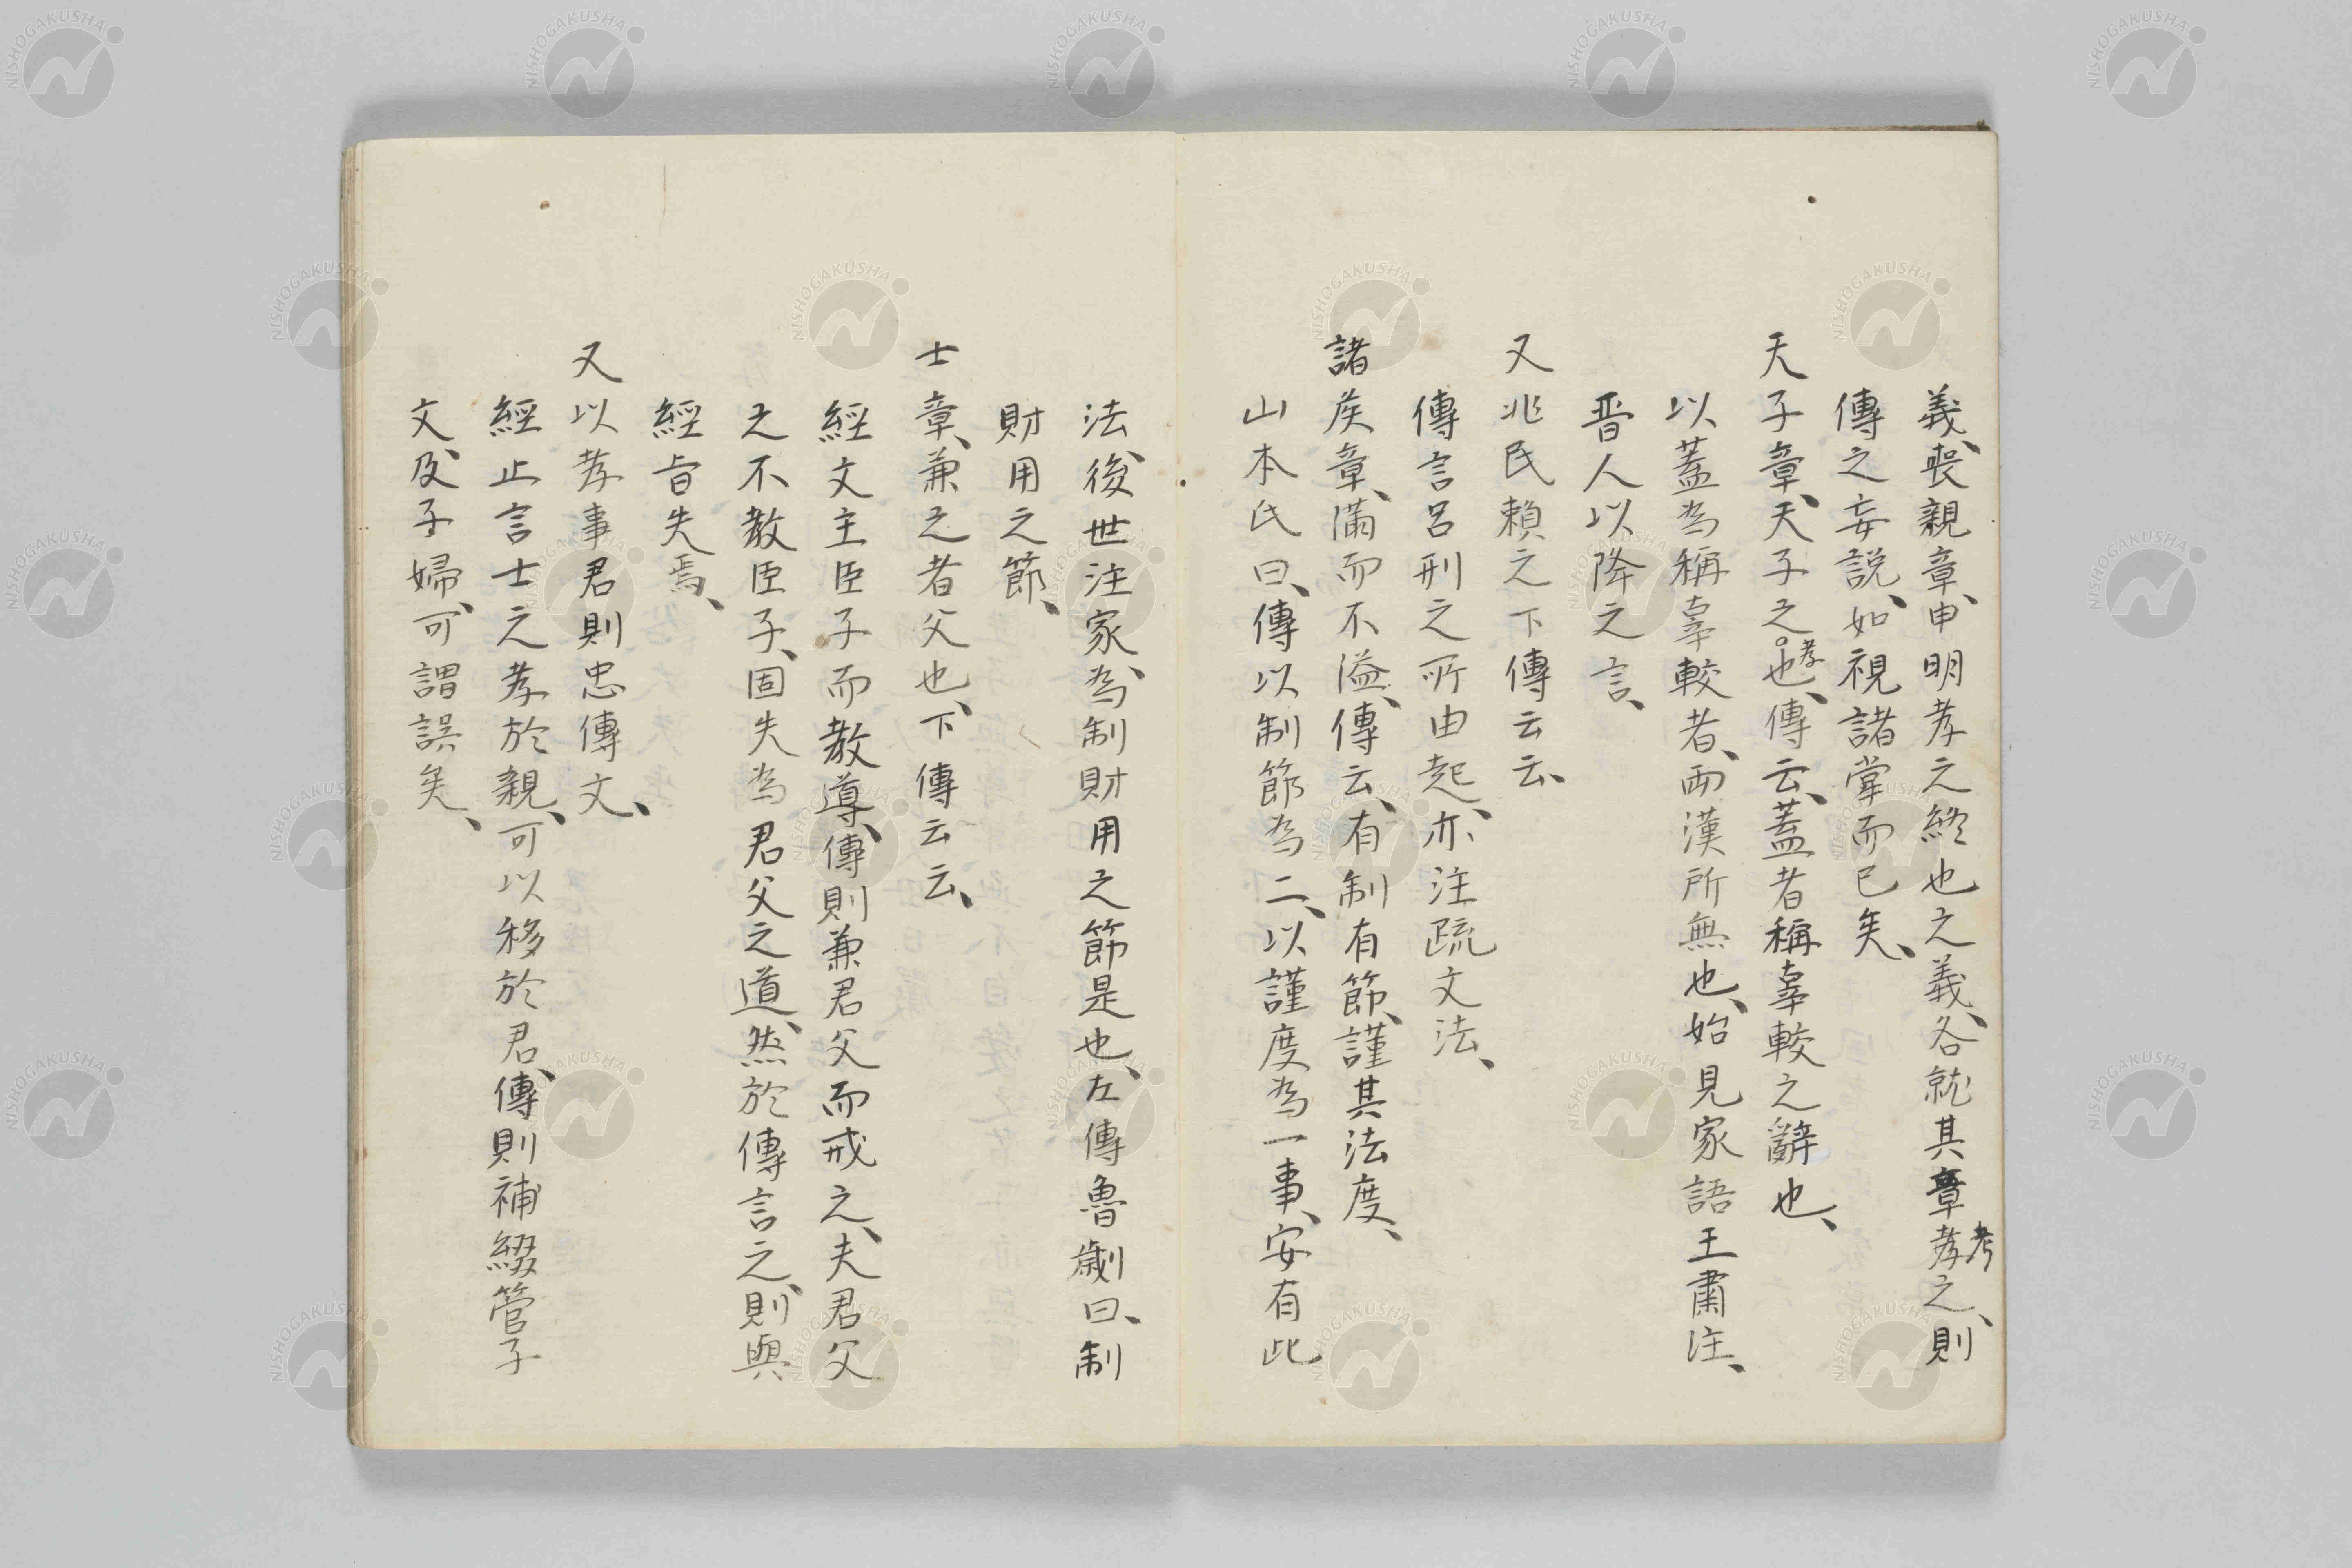 義、喪親章、申明孝之終也之義、各就其章孝之、則
考
傳之妄說、如視諸掌而已矣、
天子章、天子之。也、傳云、蓋者稱辜較之辭也、
孝
以蓋為稱辜較者、兩漢所無也、始見家語王肅注、
晋人以降之言、
又兆民賴之下傳云云、
傳言呂刑之所由起、亦注疏文法、
諸侯章、滿而不溢、傳云、有制有節、謹其法度、
山本氏曰、傳以制節為二、以謹度為一事、安有此
法、後世注家、為制財用之節是也、左傳魯劌曰、制
財用之節、
士章、兼之者父也、下傳云云、
經文主臣子而教導、傳則兼君父而戒之、夫君父
之不教臣子、固失為君父之道、然於傳言之、則與
經旨失焉、
又以孝事君則忠傳文、
經止言士之孝於親、可以移於君、傳則補綴管子
文、及子婦、可謂誤矣、
NISHOGAKUSHA